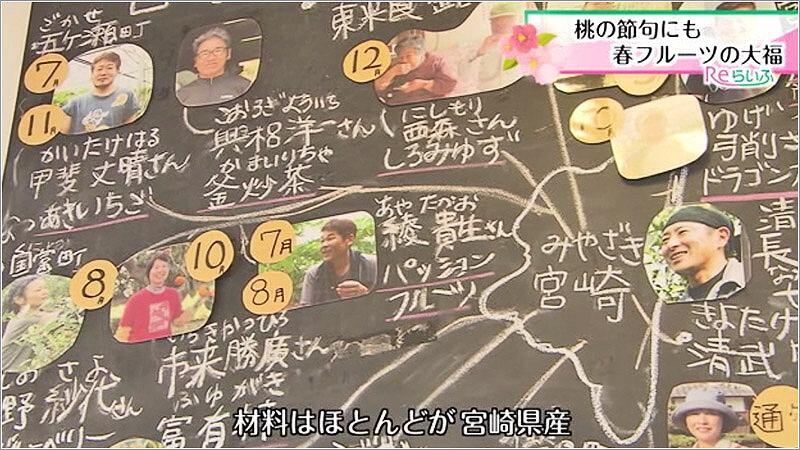 桃の節句にも
春フルーツの大福
Reらいふ
ごかせ
五ケ瀬町
7月
11月
かいたけはる
甲斐 丈晴さん
なつあきいちご
こおろぎよういち
興梠洋一さん
かまいりちゃ
釜炒茶
12月
にしもり
西森さん
しろみゆず
ゆげ
弓削さ
ドラゴン
みやざき
宮崎
清長
きよたけ
清武
国富町
8月
10月
7月
8月
あや たかお
綾 貴生さん
パッション
フルーツ
市来 勝廣さん
ふゆがき
富有
野 紗代さん
ベリー
通
材料はほとんどが 宮崎県産